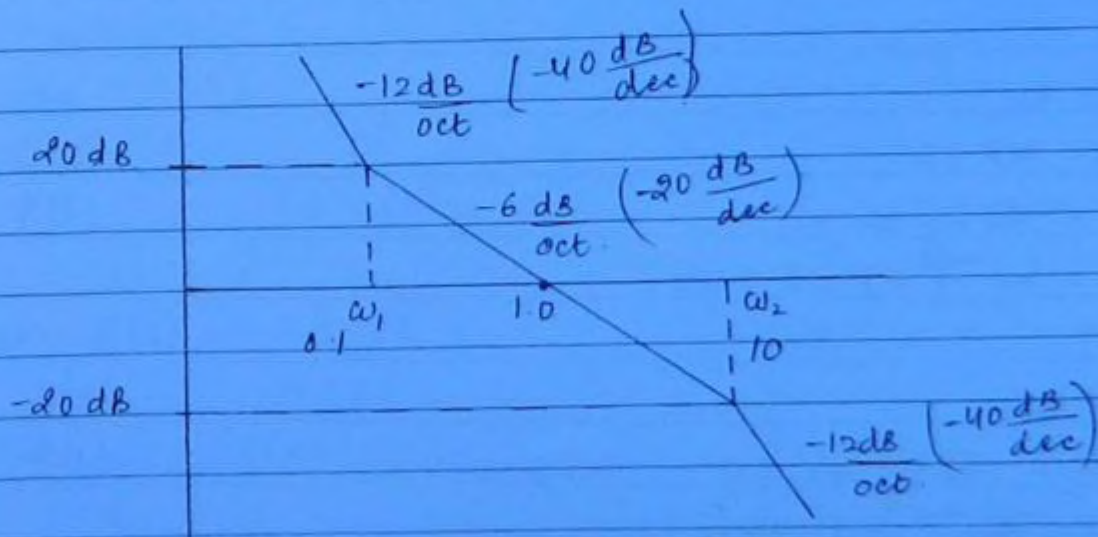 -12 dB/oct (-40 dB/dec)
20 dB
-6 dB/oct. (-20 dB/dec)
ω₁ 1.0 ω₂
0.1 10
-20 dB
-12 dB/oct. (-40 dB/dec)